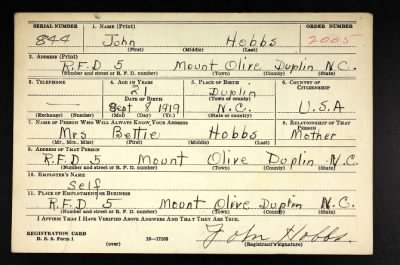 SERIAL NUMBER 1. NAME (Print) ORDER NUMBER
844 John Hobbs 2005
(First) (Middle) (Last)
2. ADDRESS (Print)
R.F.D 5 Mount Olive Duplin N.C.
(Number and street or R. F. D. number) (Town) (County) (State)
3. TELEPHONE 4. AGE IN YEARS 5. PLACE OF BIRTH 6. COUNTRY OF CITIZENSHIP
21 Duplin
DATE OF BIRTH (Town or county)
Sept 8 1919 N.C. U.S.A
(Exchange) (Number) (Mo.) (Day) (Yr.) (State or country)
7. NAME OF PERSON WHO WILL ALWAYS KNOW YOUR ADDRESS 8. RELATIONSHIP OF THAT PERSON
Mrs Bettie Hobbs Mother
(Mr., Mrs., Miss) (First) (Middle) (Last)
9. ADDRESS OF THAT PERSON
R.F.D 5 Mount Olive Duplin N.C.
(Number and street or R. F. D. number) (Town) (County) (State)
10. EMPLOYER'S NAME
Self
11. PLACE OF EMPLOYMENT OR BUSINESS
R.F.D 5 Mount Olive Duplin N.C.
(Number and street or R. F. D. number) (Town) (County) (State)
I AFFIRM THAT I HAVE VERIFIED ABOVE ANSWERS AND THAT THEY ARE TRUE.
REGISTRATION CARD
D. S. S. Form 1 16—17105 John Hobbs.
(over) (Registrant's signature)